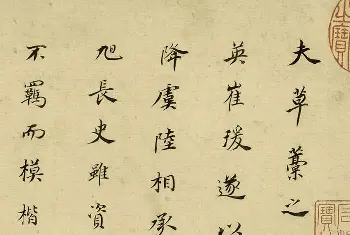 夫草藁之
英崔瑗遂以
降虞陸相承
旭長史雖資
不羈而模楷